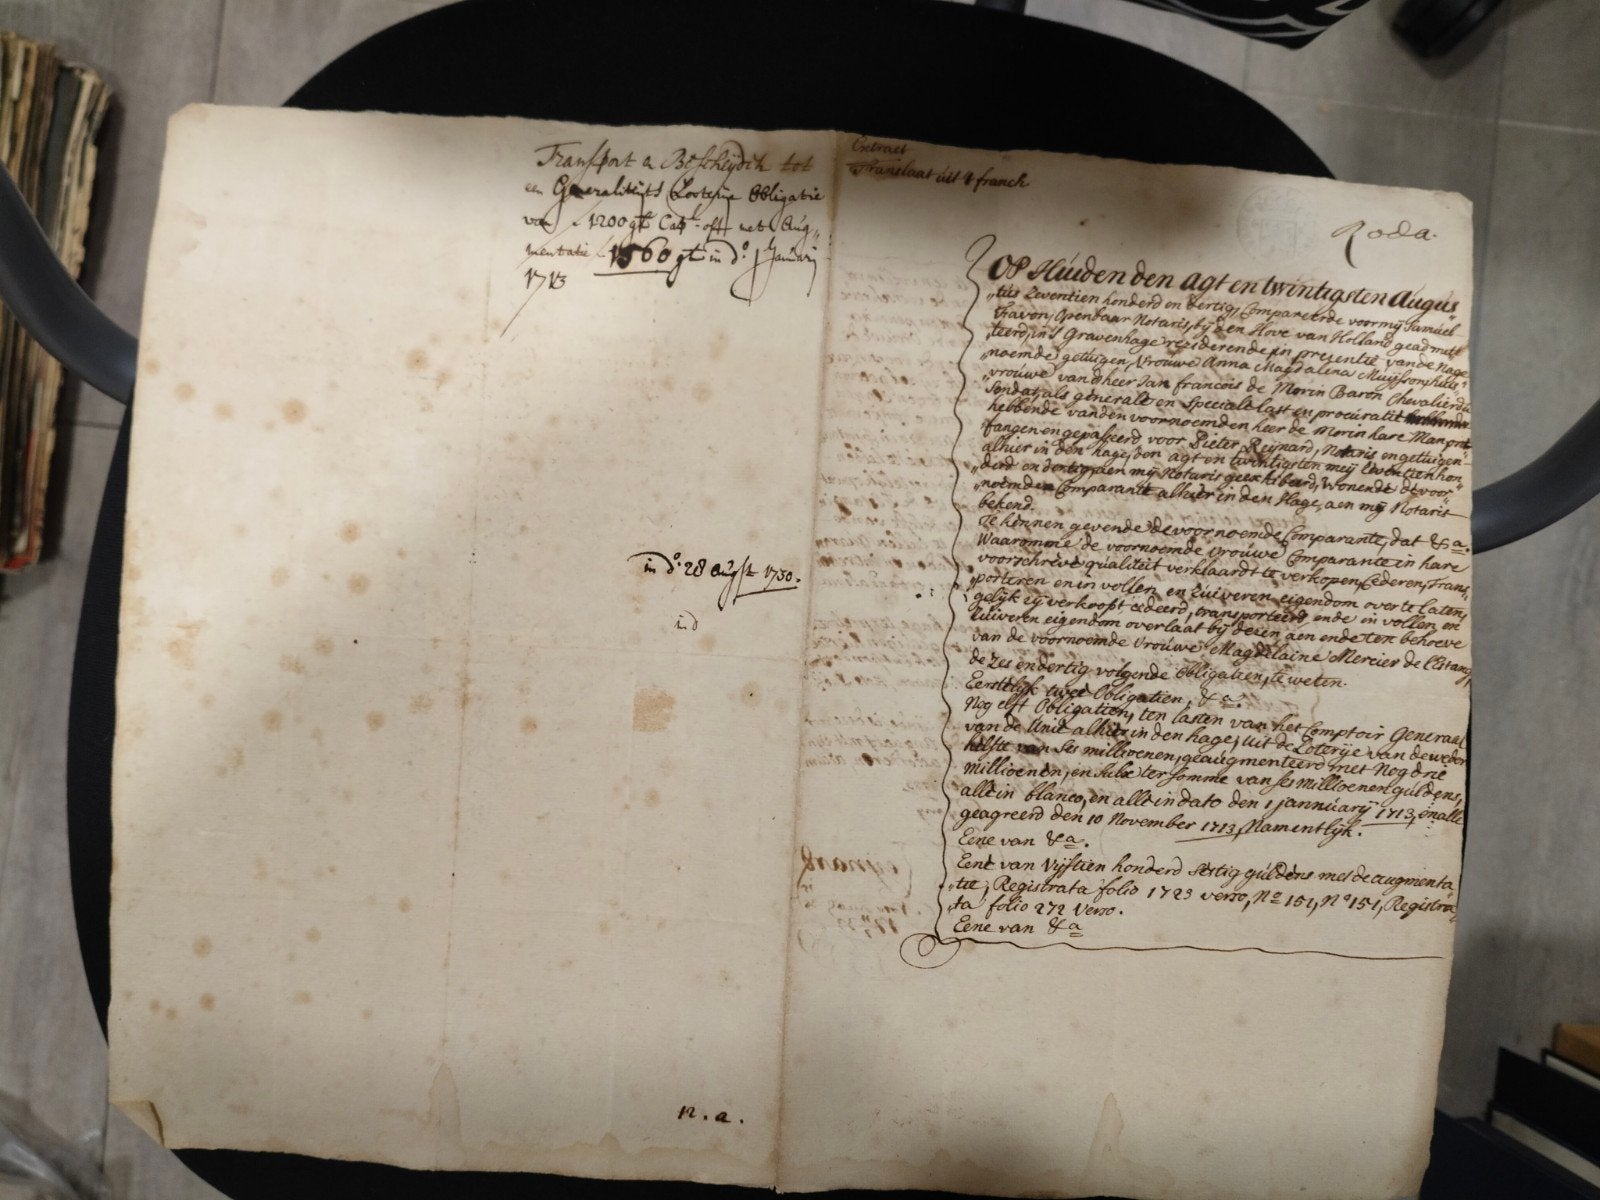 Transport & Bescheÿden tot
een Generaliteÿts Loterije Obligatie
van ƒ 1200 gl Capl. off met Aug„
mentatie ƒ 1560 gl in do. 1 Januarij
1713
in do. 28 Augst 1730.
ind
n.a.
Extract
Translaat uit 't fransch
Op Húiden den agt en twintigsten Aúgús„
„tús Zeventien honderd en dertig, Compareerde voor mij Samúel
Favon, Openbaar Notaris, bij den Hove van Holland geadmit„
„teerd, in 's Gravenhage resideerende, in presentie van de Nage„
„noemde getúigen, Vroúwe Anna Magdalena Múÿsson, húis„
„vroúwe van d'heer Jan francois de Morin Baron Chevalier de
Sendat, als generale en Speciale last en procúratie
hebbende van den voornoemden heer de Morin hare Man
en gepasseerd voor Pieter Reÿnard, Notaris en getúigen
alhier in den hage, den agt en twintigsten meij Zeventien hon„
„derd en dertig, aen mij Notaris wonende de voor„
„noemde Comparante alhier in den Hage, aen mij Notaris
bekend.
Te kennen gevende de voornoemde Comparante, dat &a.
Waaromme de voornoemde vroúwe Comparante in hare
voorschreve qúaliteit verklaardt te verkopen, Cederen, Trans„
„porteren en in vollen en Zúiveren eigendom over te laten,
gelijk zij verkoopt cedeerd, transporteerd ende in vollen en
Zúiveren eigendom overlaat bij desen aen ende ten behoeve
van de voornoemde Vroúwe Magdelaine Mercier de l'Estang,
de zes en dertig volgende Obligatien, te weten.
Eerstelijk twee Obligatien, &a.
Nog elft Obligatien, ten lasten van het Comptoir Generaal
van de Unie alhier in den hage, úit de Loterije van de weder
helfte van Ses millioenen, geaúgmenteerd met Nog drie
millioenen, en Súlx ter somme van ses millioenen gúldens,
alle in blanco, en alle in dato den 1 jannúarij 1713, en alle
geagreerd den 10 November 1713, Namentlijk.
Eene van &a.
Eene van Vijftien honderd Sestig gúldens met de aúgmenta„
„tie, Registrata folio 1723 verso, No 151, No 151, Registra„
„ta folio 272 Verso.
Eene van &a